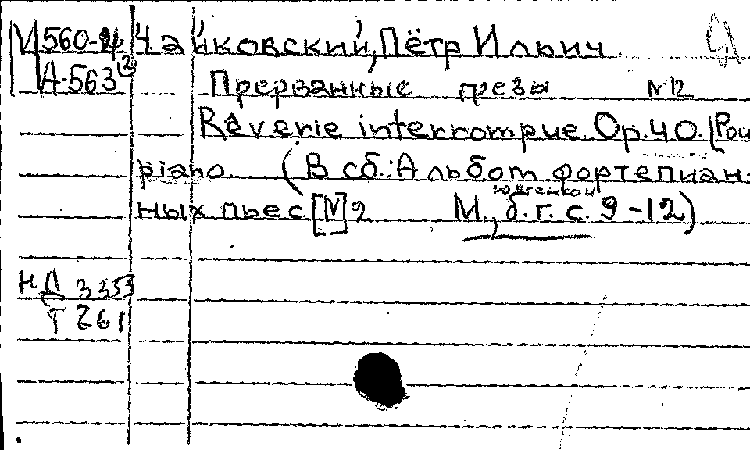 М 560-
Чайковский, Пётр Ильич
А-563
Прерванные грезы №12
Rêverie interrompue. Op.40. [Pour
piano. (В сб.: Альбом фортепиан-
ных пьес [№] 2 М., Юргенсон б.г. с. 9-12)
НД 3353
Т 261